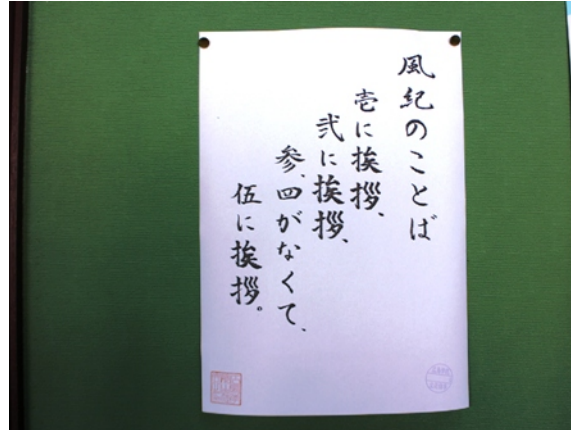 風紀のことば
壱に挨拶、
弐に挨拶、
参、四がなくて、
伍に挨拶。